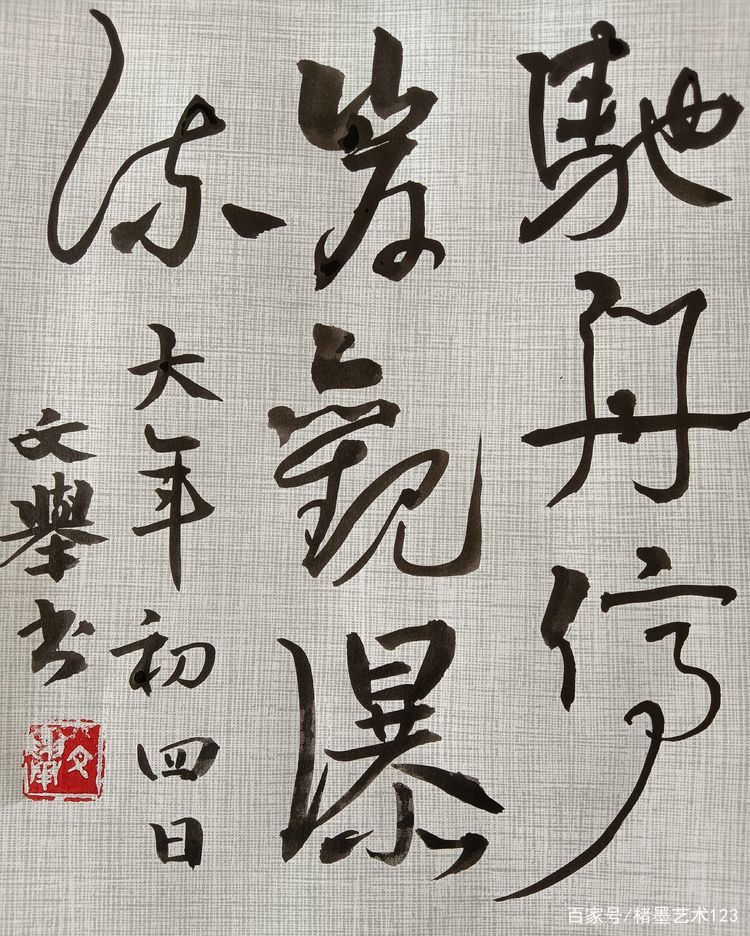 馳舟停
觀瀑
流
大年初四日
文舉书
百家号/楮墨艺术123